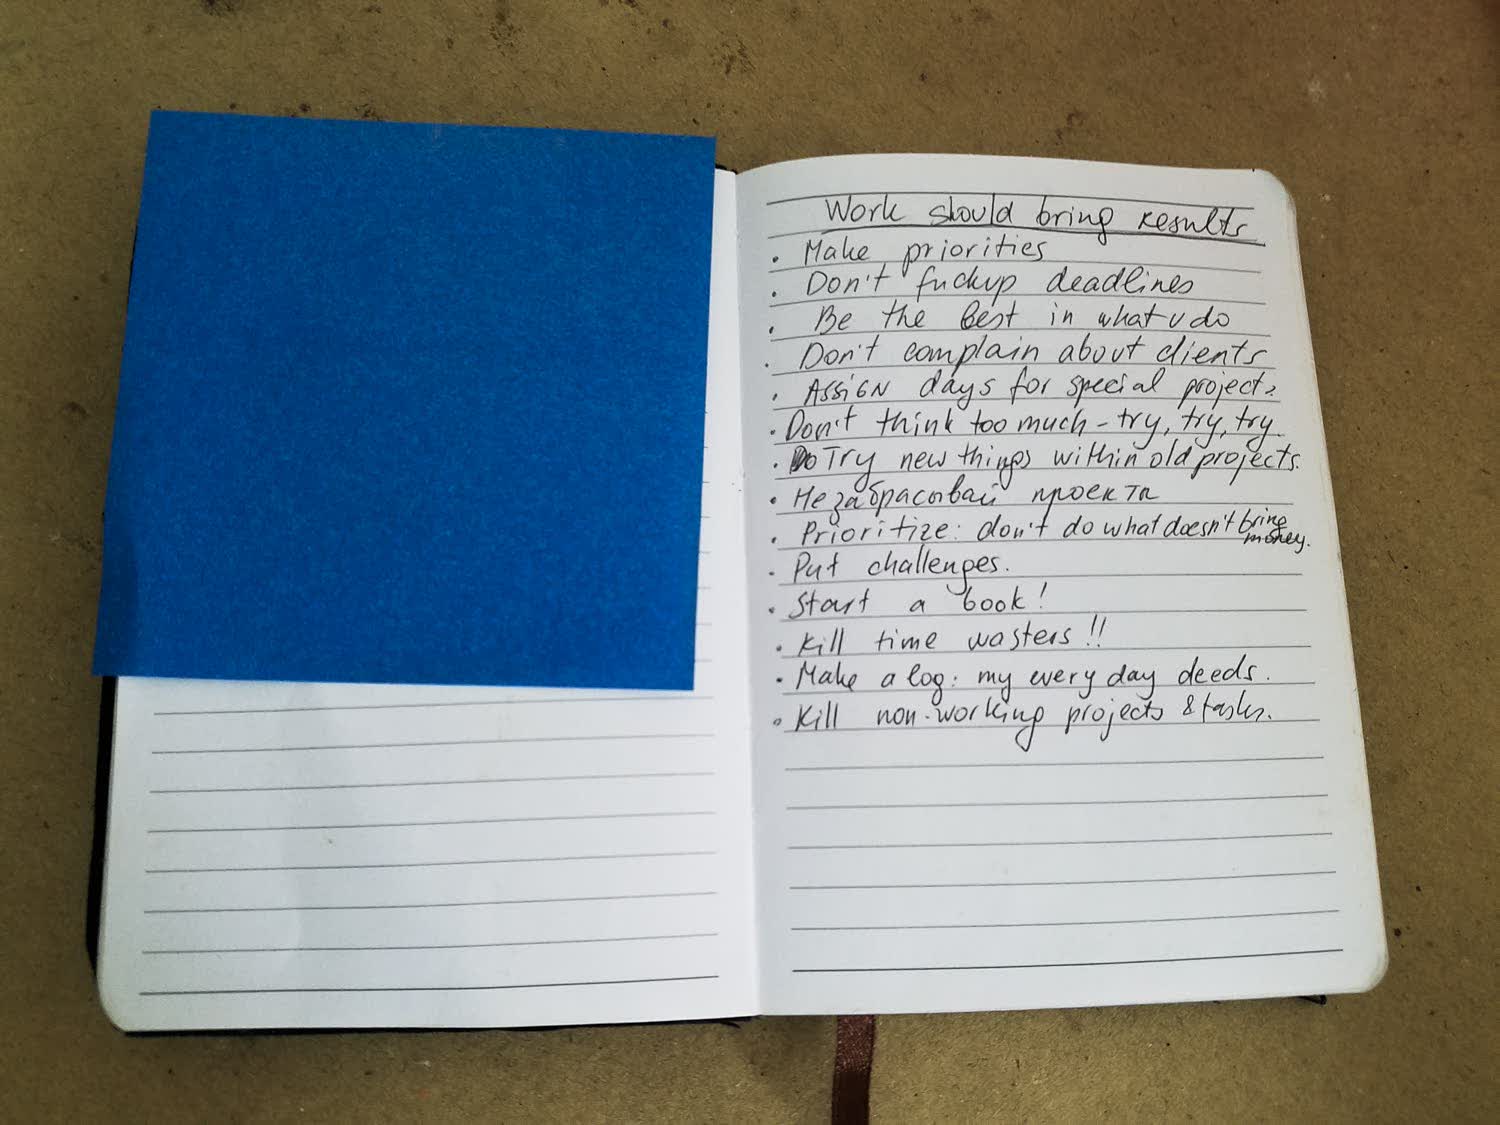 Work should bring results
· Make priorities
· Don't fuckup deadlines
· Be the best in what u do
· Don't complain about clients
· Assign days for special projects
· Don't think too much - try, try, try.
· Try new things within old projects.
· Не забрасывай проекты
· Prioritize: don't do what doesn't bring
money.
· Put challenges.
· Start a book!
· Kill time wasters!!
· Make a log: my every day deeds.
· Kill non-working projects & tasks.